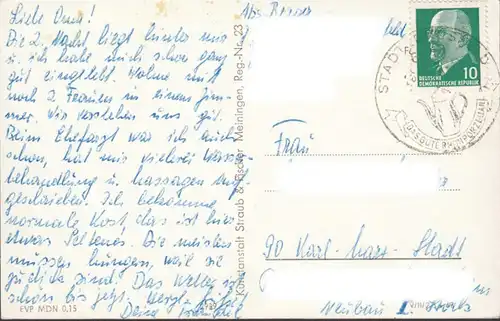 Liebe Oma!
Die 2. Nacht liegt hinter mir
u. ich habe mich schon ganz
gut eingelebt. Wohne mit
noch 2 Frauen in einem Zim-
mer. Wir verstehen uns gut.
Beim Chefarzt war ich auch
schon, hat mir vielerei Wasser-
behandlung u. Massagen auf-
geschrieben. Ich bekomme
normale Kost, das ist hier
etwas Seltenes. Die meisten
müssen hungern, weil sie
zu dick sind! Das Wetter ist
schön bis jetzt. Herzl.
Deine
EVP MDN 0,15
Kunstanstalt Straub & Fischer Meiningen, Reg.-Nr. 23
Abs.
STADT
DEUTSCHE
DEMOKRATISCHE REPUBLIK
10
Frau
90 Karl-Marx-Stadt
Neubau